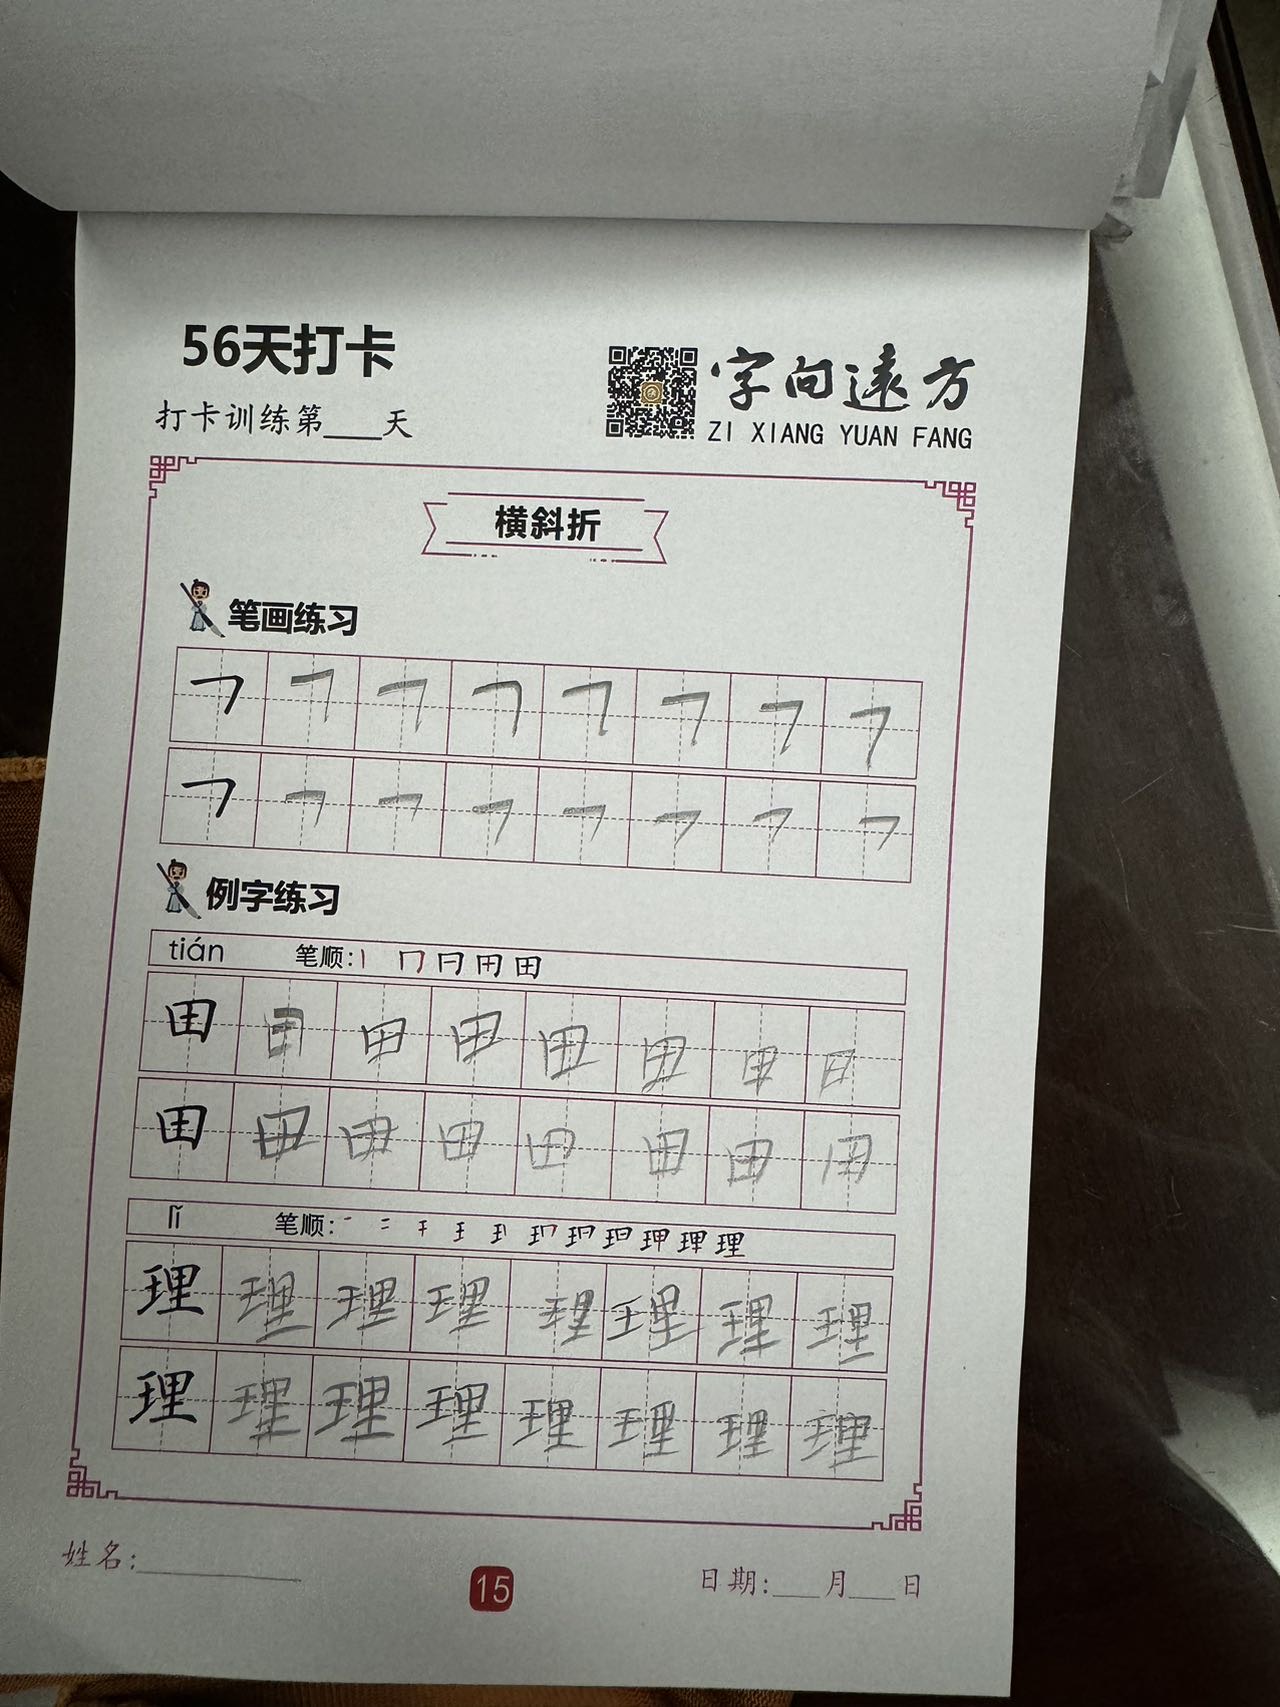 56天打卡
打卡训练第___天
字向遠方
ZI XIANG YUAN FANG
横斜折
笔画练习
㇇ ㇇ ㇇ ㇇ ㇇ ㇇ ㇇ ㇇
㇇ ㇇ ㇇ ㇇ ㇇ ㇇ ㇇ ㇇
例字练习
tián 笔顺:丨 冂 冃 用 田
田 田 田 田 田 田 田 日
田 田 田 田 田 田 田 田
lǐ 笔顺:
理 理 理 理 理 理 理 理
理 理 理 理 理 理 理 理
姓名:___
15
日期:___月___日